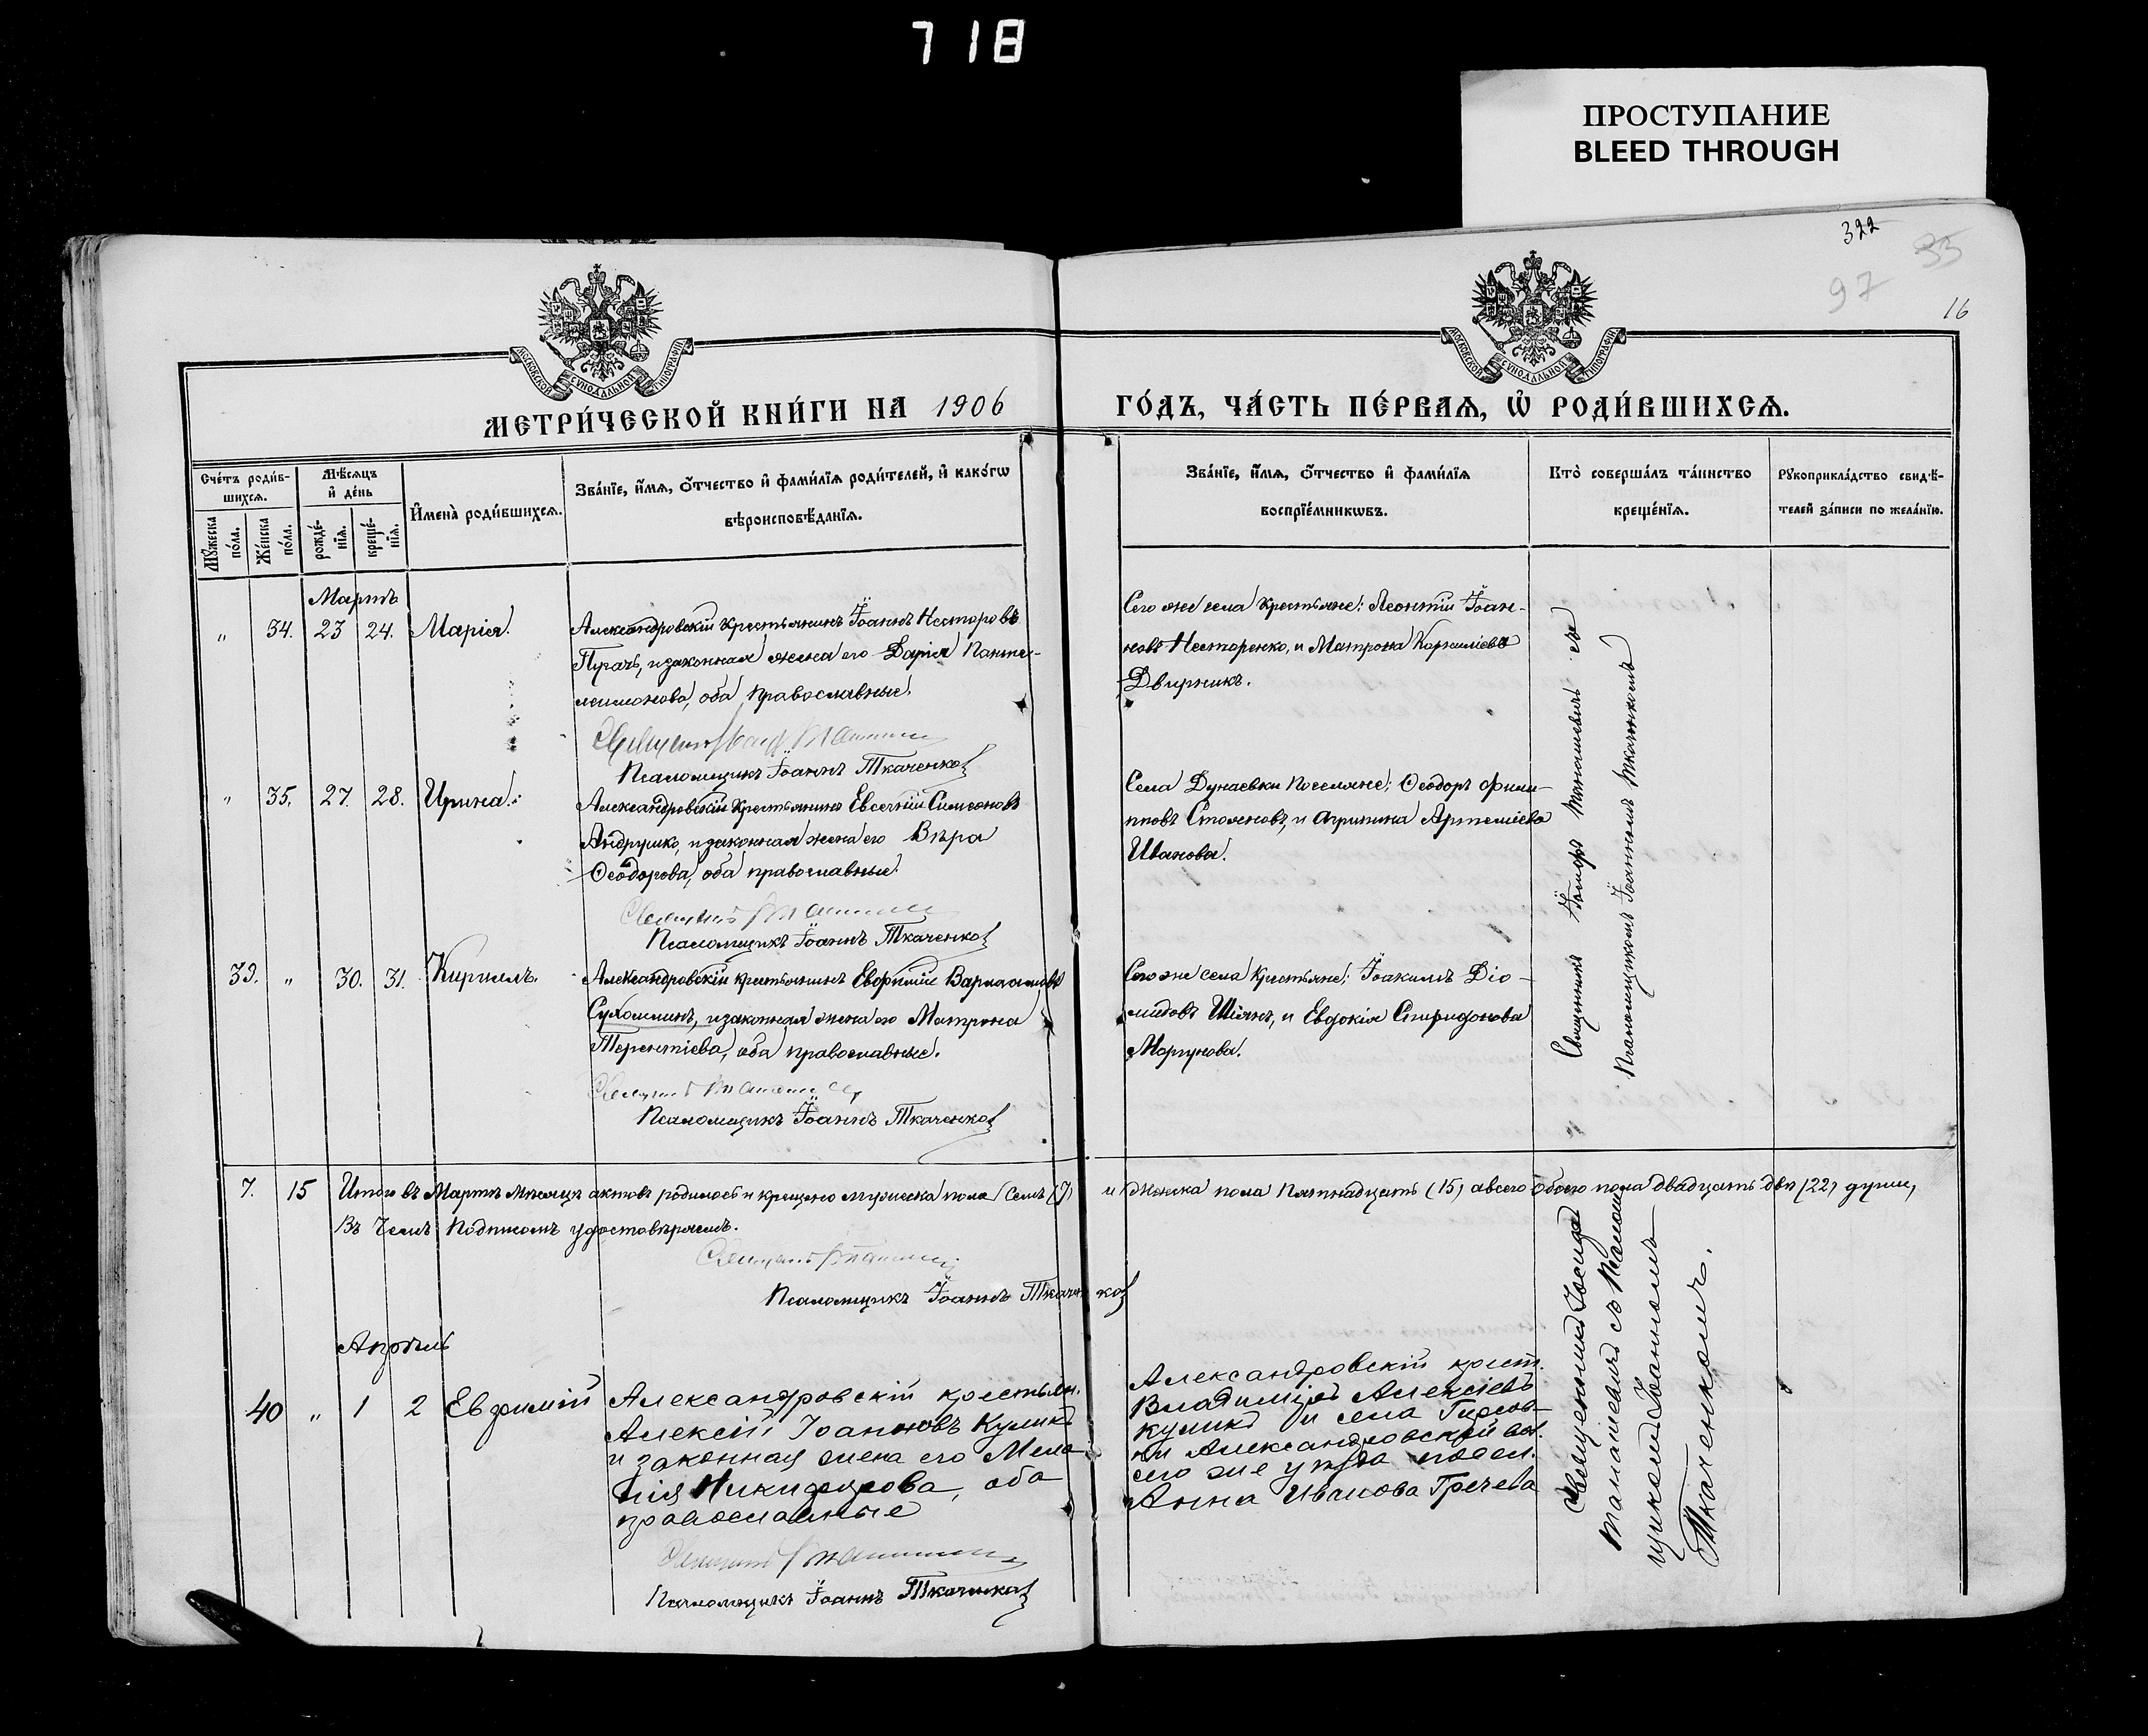 718
ПРОСТУПАНИЕ
BLEED THROUGH
322
35
97
16
МОСКОВСКОЙ СУНОДАЛЬНОЙ ТИПОГРАФІИ
МОСКОВСКОЙ СУНОДАЛЬНОЙ ТИПОГРАФІИ
МЕТРИ́ЧЕСКОЙ КНИ́ГИ НА 1906 ГО́ДЪ, ЧА́СТЬ ПЕ́РВАѦ, Ѡ҆ РОДИ́ВШИХСѦ.
Сче́тъ роди́в-
шихсѧ.
Мꙋ́жеска по́ла.
Же́нска по́ла.
Мѣ́сѧцъ
и҆ де́нь
рожде́-
нїѧ.
креще́-
нїѧ.
И҆мена̀ роди́вшихсѧ.
Зва́нїе, и҆́мѧ, ѻ҆́тчество и҆ фами́лїѧ роди́телей, и҆ како́гѡ
вѣроисповѣ́данїѧ.
Зва́нїе, и҆́мѧ, ѻ҆́тчество и҆ фами́лїѧ
воспрїе́мникѡвъ.
Кто̀ соверша́лъ та́инство
креще́нїѧ.
Рꙋкоприкла́дство свидѣ́-
телей за́писи по жела́нїю.
Мартъ
„ 34. 23 24. Марія.
Александровскій крестьянинъ Іоаннъ Несторовъ
Пугачъ, и законная жена его Дарія Пантелеимонова, оба православные.
Псаломщикъ Іоаннъ Ткаченко
Сего же села крестьяне: Леонтій Іоан-
новъ Несторенко, и Матрона Корниліева
Дворникъ.
„ 35. 27. 28. Ирина.
Александровскій крестьянинъ Евсечній Симеоновъ
Андрушко, и законная жена его Вѣра
Ѳеодорова, оба православные.
Псаломщикъ Іоаннъ Ткаченко
Села Дунаевки поселяне; Ѳеодоръ Фили-
пповъ Стояновъ, и Агрипина Артеміева
Иванова.
Священникъ Іосифъ Танашевичъ съ
Псаломщикомъ Іоанномъ Ткаченкомъ
39. „ 30. 31. Кириллъ.
Александровскій крестьянинъ Евфимій Варлаамовъ
Сухоминъ, и законная жена его Матрона
Терентіева, оба православные.
Псаломщикъ Іоаннъ Ткаченко
Сего же села крестьяне; Іоакимъ Діо-
мидовъ Шіянъ, и Евдокія Спиридонова
Моргунова.
7. 15 Итого въ Мартѣ мѣсяцѣ актовъ родилось и крещено мужеска пола семь (7) и женска пола пятнадцать (15) а всего обоего пола двадцать двѣ (22) души,
Въ чемъ подписомъ удостовѣряемъ.
Псаломщикъ Іоаннъ Ткаченко
Апрѣль
40 „ 1 2 Евфимій
Александровскій крестьян.
Алексій Іоанновъ Куликъ
и законная жена его Мела-
нія Никифорова, оба
православные
Псаломщикъ Іоаннъ Ткаченко
Александровскій крест.
Владиміръ Алексіевъ
Куликъ и села
Александровской вол.
сего же уѣзда посел.
Анна Иванова Гречева
Священникъ Іосифъ
Танашевичъ съ Псалом-
щикомъ Іоанномъ
Ткаченкомъ.